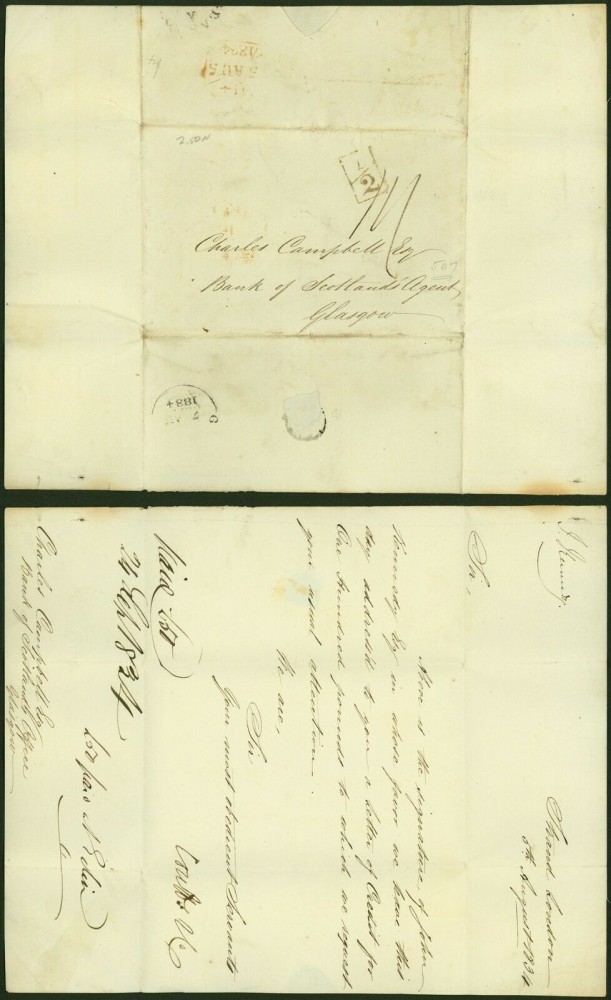 5 AU 5
1834
2.50N
1/2
Charles Campbell Esq
507
Bank of Scotlands Agent,
Glasgow
7
1834
Strand London
5th August 1834
J. Kennedy.
Sir,
Above is the signature of John
Kennedy Esq in whose favor we have this
day addressed to you a letter of Credit for
One Hundred pounds to which we request
your usual attention
We are,
Sir
Your most obedient Servants
Coutts & Co
Paid £50
24 Sep 1834
Charles Campbell Esq
Bank of Scotlands Office
Glasgow